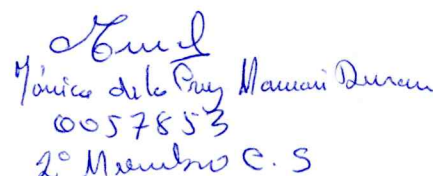 Mónica de la Cruz Mamani Duran
0057853
2° Miembro C. S